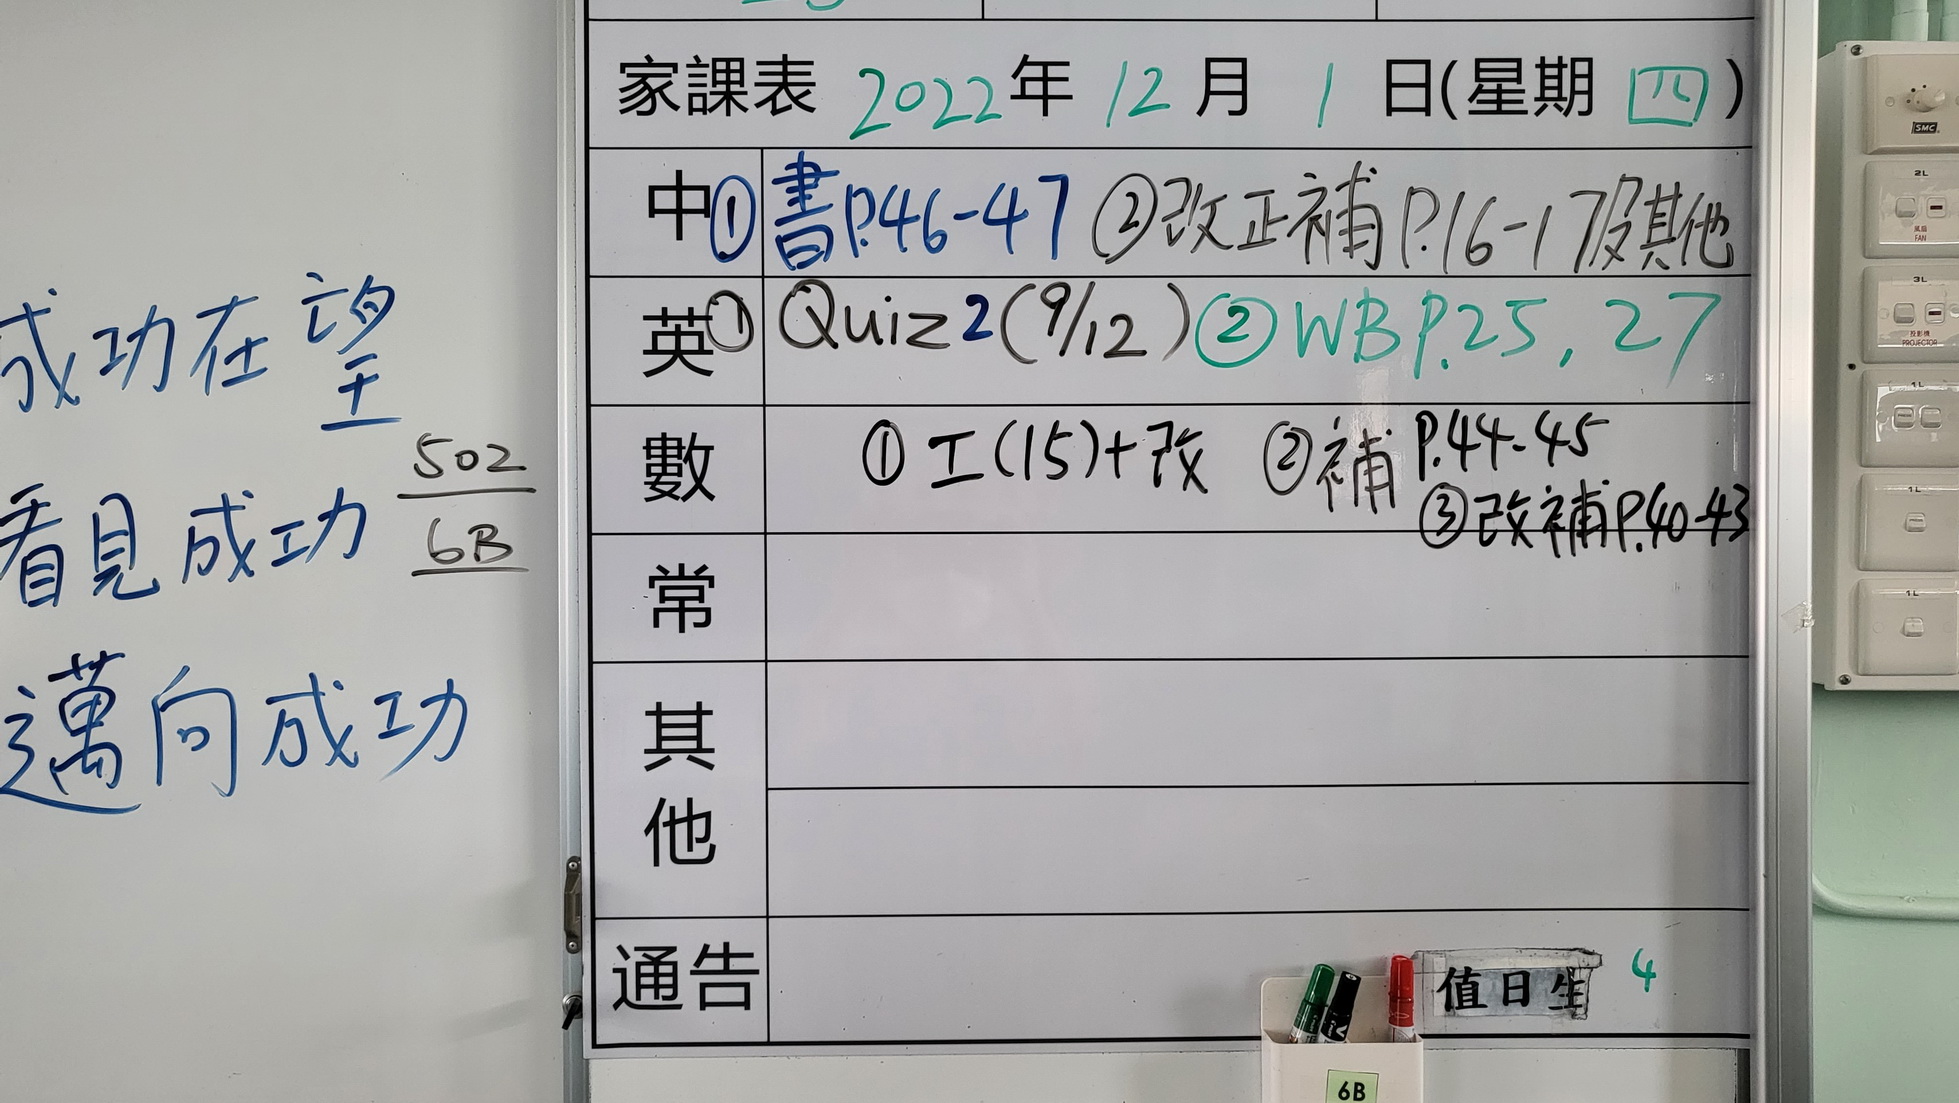 家課表 2022年 12月 1日(星期四)
中 ①書P.46-47 ②改正補P.16-17及其他
英 ① Quiz 2 (9/12) ② WB P.25, 27
數 ① 工(15)+改 ②補 P.44-45
③改補P.40-43
常
其他
通告
值日生 4
6B
成功在望
看見成功
邁向成功
502
6B
SMC
2L
風扇
FAN
3L
投影機
PROJECTOR
1L
1L
1L